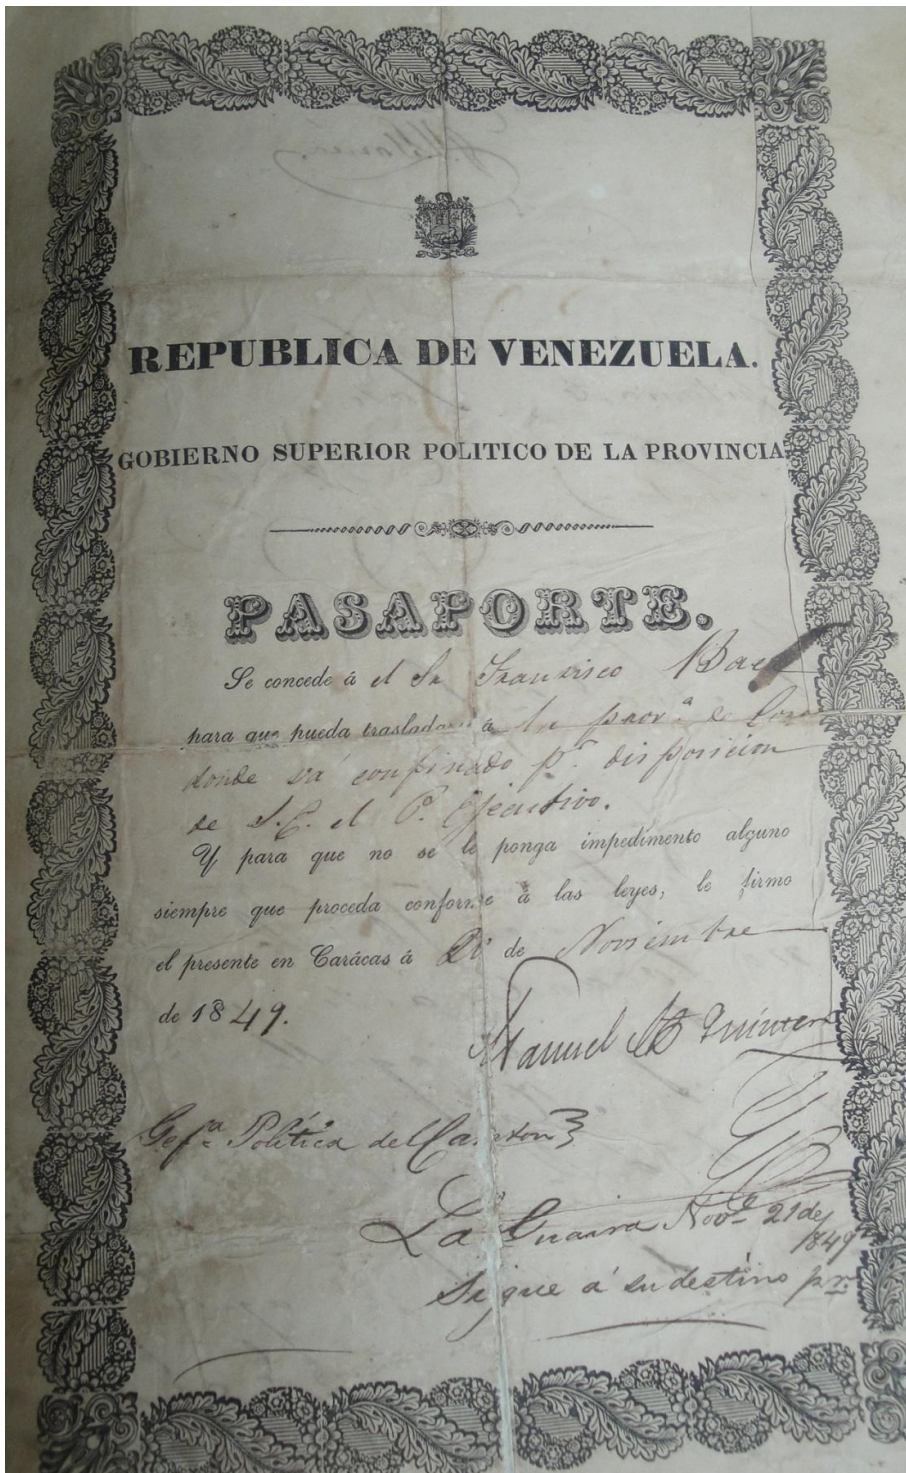 REPUBLICA DE VENEZUELA.
GOBIERNO SUPERIOR POLITICO DE LA PROVINCIA
PASAPORTE.
Se concede á el Sr Francisco
para que pueda trasladarse á la prov.ª de
donde vá confinado pr. disposicion
de S. E. el P. Ejecutivo.
Y para que no se le ponga impedimento alguno
siempre que proceda conforme á las leyes, le firmo
el presente en Carácas á de Noviembre
de 1849.
Manuel
Gefª Política del Canton
La Guaira Nove 21 de
1849
Sigue á su destino pr